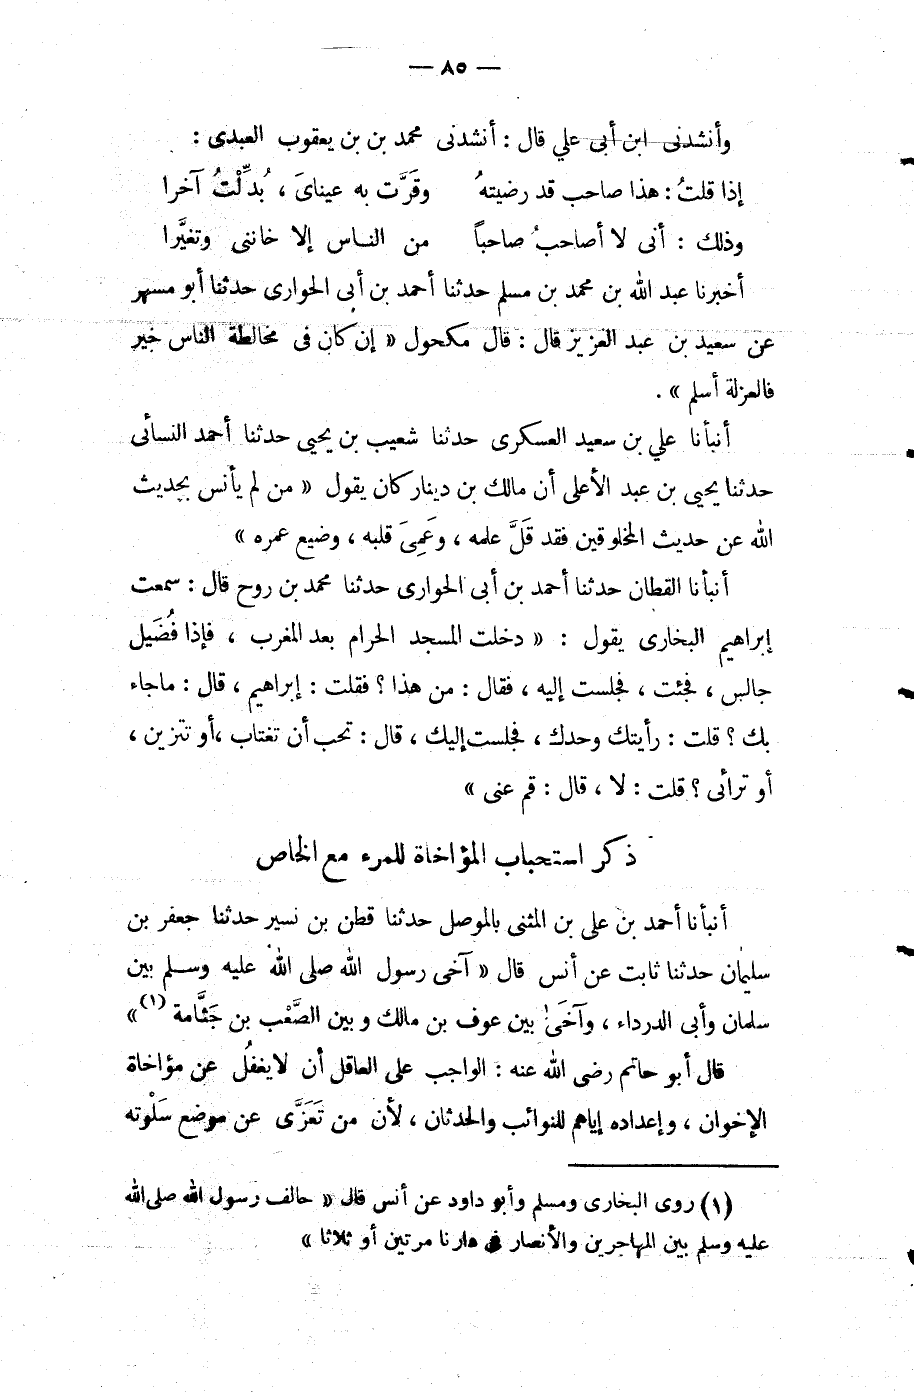 — ٨٥ —
وأنشدنى ابن أبى علي قال : أنشدنى محمد بن بن يعقوب العبدى :
إذا قلتُ : هذا صاحب قد رضيتهُ وقَرَّت به عيناىَ ، بُدِّلْتُ آخرا
وذلك : أنى لا أصاحبُ صاحباً من النـاس إلا خاننى وتغيَّرا
أخبرنا عبد الله بن محمد بن مسلم حدثنا أحمد بن أبى الحوارى حدثنا أبو مسهر
عن سعيد بن عبد العزيز قال : قال مكحول « إن كان فى مخالطة الناس خير
فالعزلة أسلم » .
أنبأنا علي بن سعيد العسكرى حدثنا شعيب بن يحيى حدثنا أحمد النسائى
حدثنا يحيى بن عبد الأعلى أن مالك بن دينار كان يقول « من لم يأنس بحديث
الله عن حديث المخلوقين فقد قَلَّ علمه ، وعَمِىَ قلبه ، وضيع عمره »
أنبأنا القطان حدثنا أحمد بن أبى الحوارى حدثنا محمد بن روح قال : سمعت
إبراهيم البخارى يقول : « دخلت المسجد الحرام بعد المغرب ، فإذا فُضَيل
جالس ، فجئت ، فجلست إليه ، فقال : من هذا ؟ فقلت : إبراهيم ، قال : ماجاء
بك ؟ قلت : رأيتك وحدك ، فجلست إليك ، قال : تحب أن تغتاب ،أو تتزين ،
أو ترائى ؟ قلت : لا ، قال : قم عنى »
ذكر استحباب المؤاخاة للمرء مع الخاص
أنبأنا أحمد بن على بن المثنى بالموصل حدثنا قطن بن نسير حدثنا جعفر بن
سليمان حدثنا ثابت عن أنس قال « آخى رسول الله صلى الله عليه وسـلم بين
سلمان وأبى الدرداء ، وآخَى بين عوف بن مالك وبين الصَّعْب بن جَثَّامة (١) »
قال أبو حاتم رضى الله عنه : الواجب على العاقل أن لايغفُل عن مؤاخاة
الإخوان ، وإعداده إياهم للنوائب والحدثان ، لأن من تَعَزَّى عن موضع سَلْوته
(١) روى البخارى ومسلم وأبو داود عن أنس قال « حالف رسول الله صلى الله
عليه وسلم بين المهاجرين والأنصار فى دارنا مرتين أو ثلاثا »